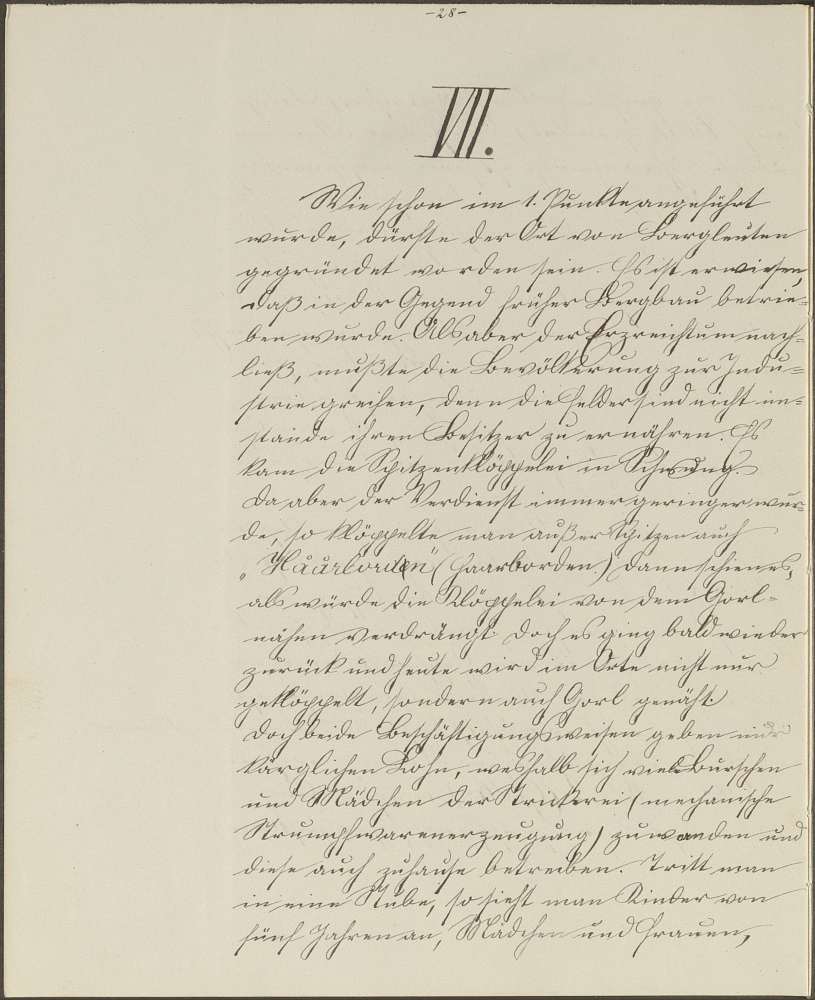 -28-
VII.
Wie schon im 1. Punkte angeführt
wurde, dürfte der Ort von Bergleuten
gegründet worden sein. Es ist erwiesen,
daß in der Gegend früher Bergbau betrie=
ben wurde. Als aber der Erzreichtum nach=
ließ, mußte die Bevölkerung zur Indu=
strie greifen, denn die Felder sind nicht im=
stande ihren Besitzer zu ernähren. Es
kam die Spitzenklöppelei in Schwung.
Da aber der Verdienst immer geringer wur=
de, so klöppelte man außer Spitzen auch
„Håårborden" (Haarborden) dann schien es,
als würde die Klöppelei von dem Gorl=
nähen verdrängt. Doch es ging bald wieder
zurück und heute wird im Orte nicht nur
geklöppelt, sondern auch Gorl genäht.
Doch beide Beschäftigungsweisen geben nur
kärglichen Lohn, weshalb sich viele Burschen
und Mädchen der Strickerei (mechanische
Strumpfwarenerzeugung) zuwanden und
diese auch zuhause betreiben. Tritt man
in eine Stube, so sieht man Kinder von
fünf Jahren an, Mädchen und Frauen,